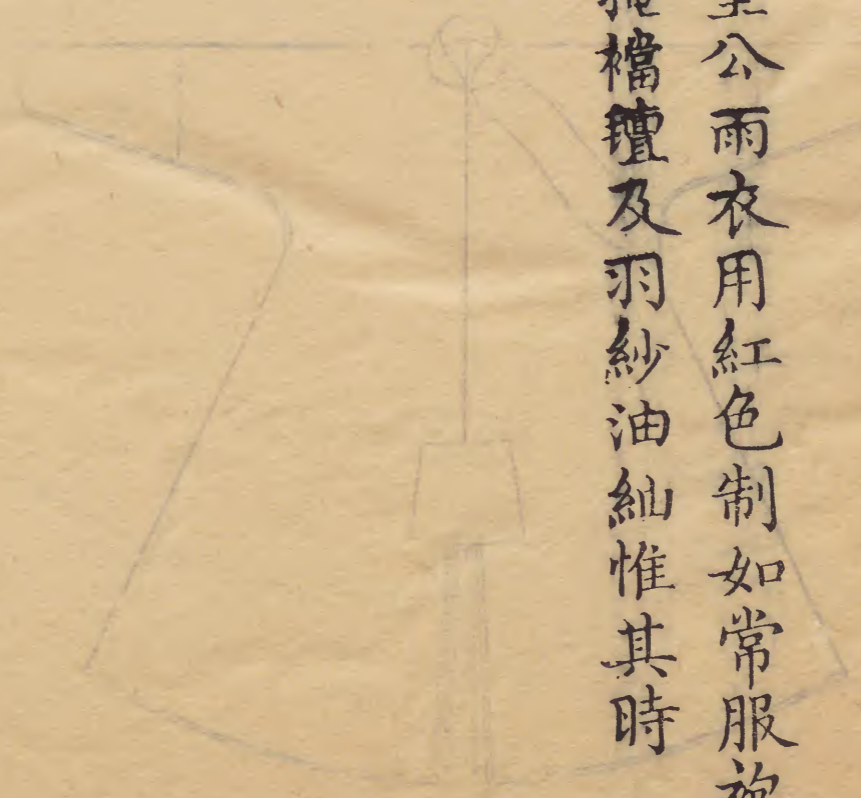 公雨衣用紅色制如常服
襠氊及羽紗油紬惟其時